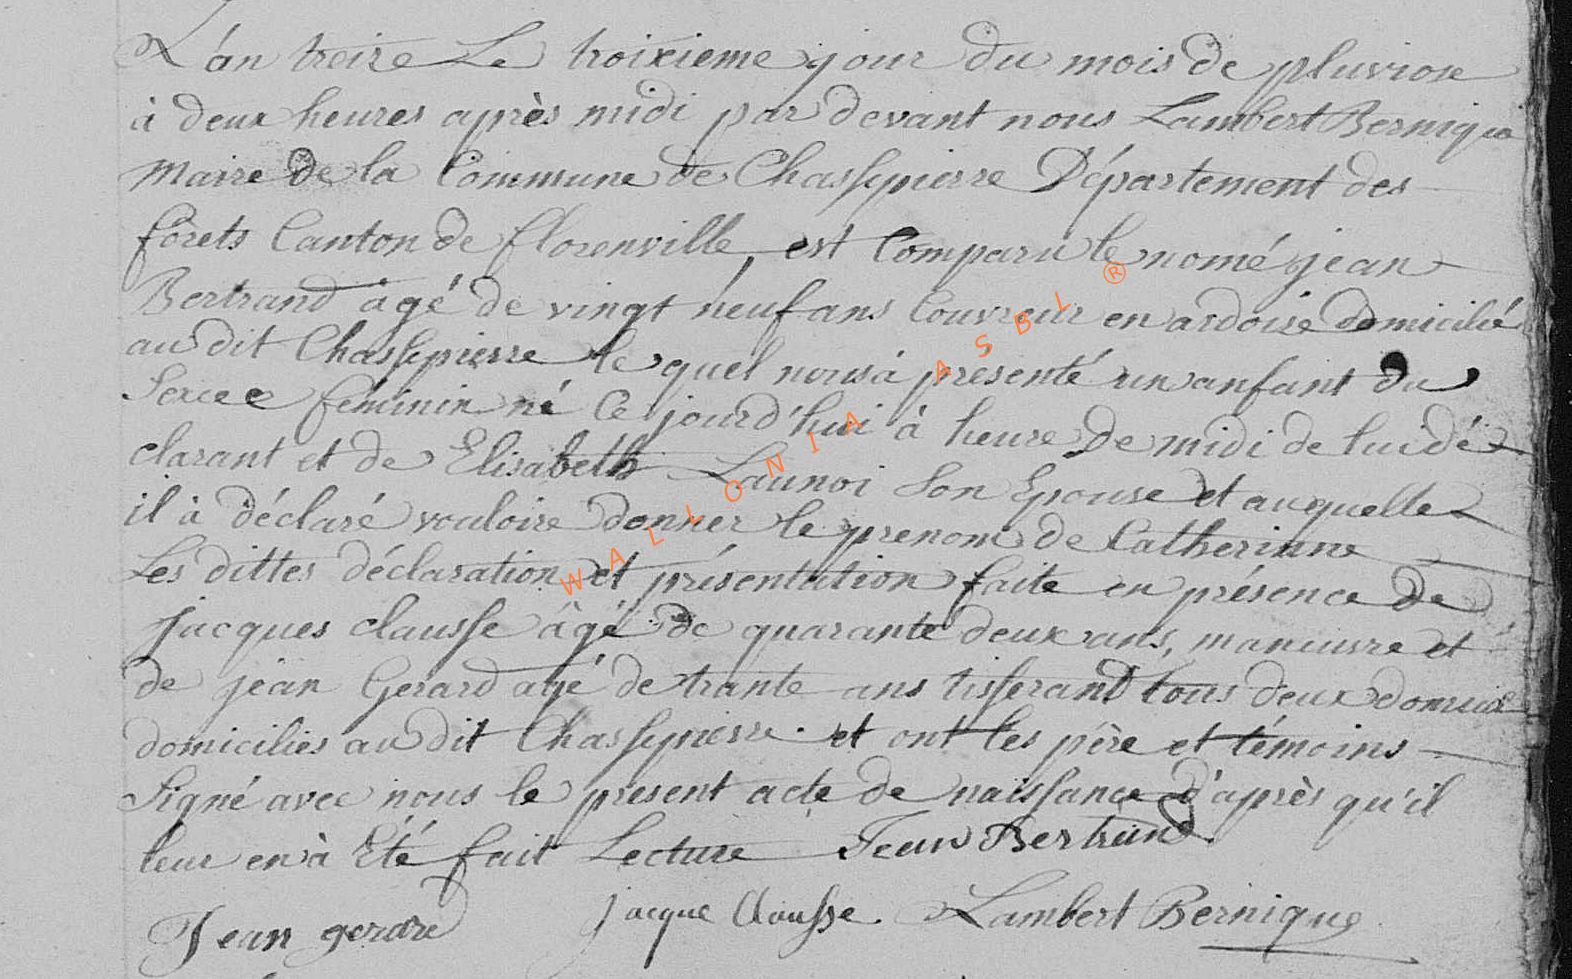 L'an treize Le troixieme jour du mois de pluviose
à deux heures après midi par devant nous Lambert Bernique
maire de la Commune de Chassepierre Département des
forets Canton de florenville, est Comparu le nomé jean
Bertrand âgé de vingt neuf ans Couvreur en ardoise domicilié
au dit Chassepierre le quel nous à présenté un anfant du
Sexee féminin né Ce jourd'hui à heure de midi de lui dé
clarant et de Elisabeth Launoi Son Epouse et auquelle
il à déclaré vouloire donner le prenom de Catherinne
Les dittes déclaration et présentation faite en présence de
jacques clausse âgé de quarante deux ans, maneuvre et
de jean Gerard agé de trante ans tisserand tous deux domicil
domiciliés au dit Chassepierre. et ont les père et témoins
Signé avec nous le present acte de naissance d'après qu'il
leur en à Eté fait Lecture Jean Bertrand
Jean gerard jacque Clausse. Lambert Bernique
WALLONIA ASBL ®